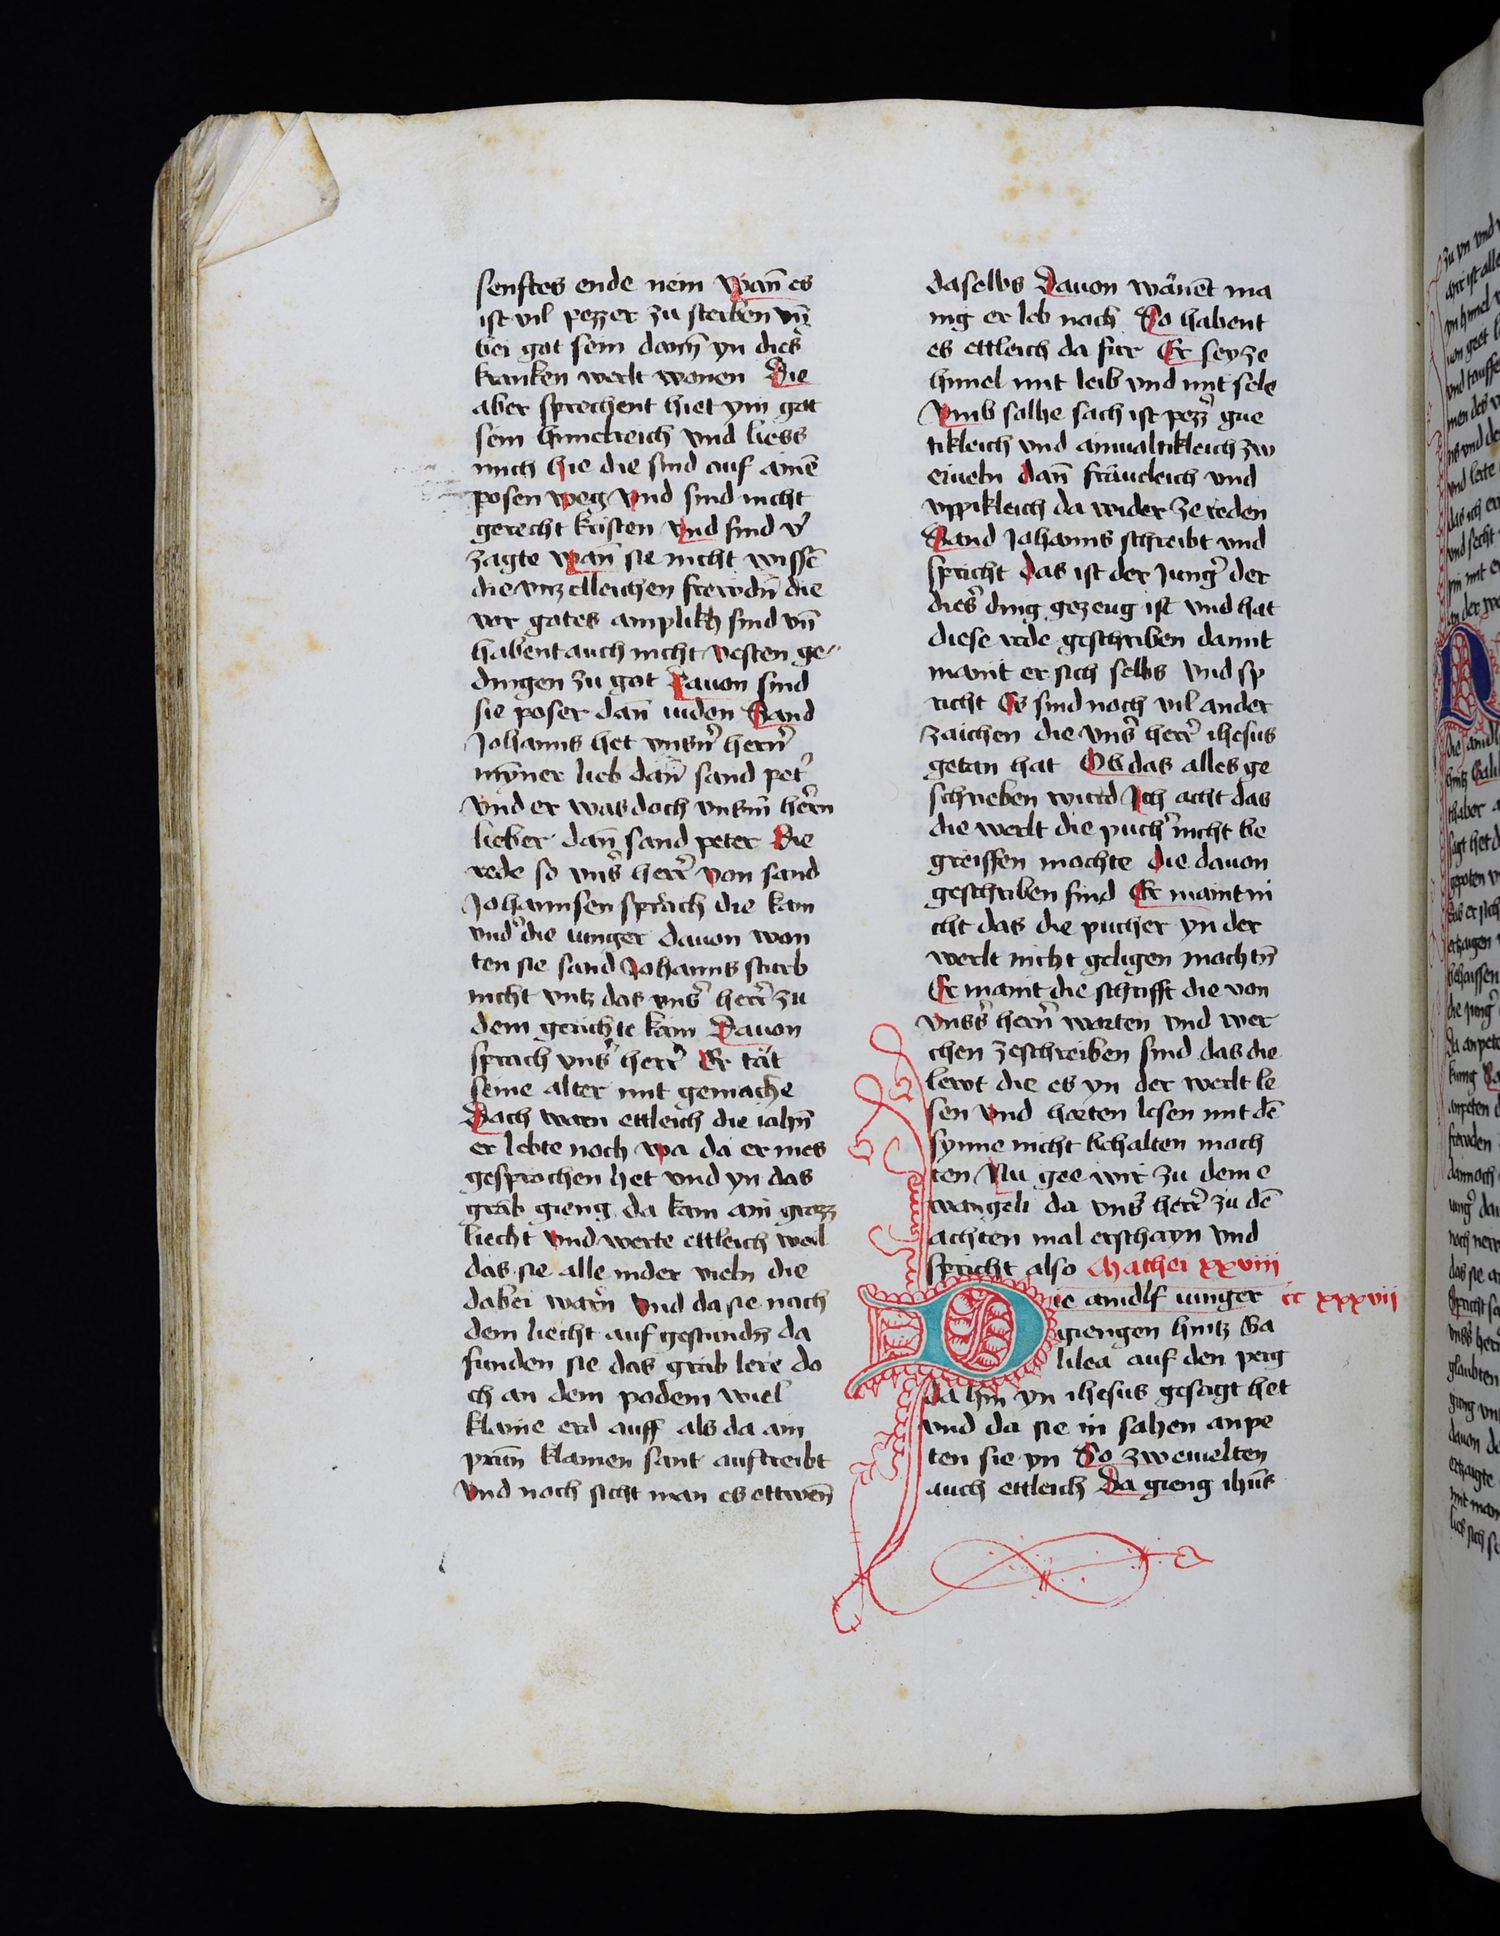 senftes ende nem Wan̄ es
ist vil pezzer zu sterben vn̄
bei got sein dann yn dieser
kranken werlt wonen Die
aber sprechent hiet ym got
sein himelreich vnd liess
mich hie die sind auf ainē
posen weg Vnd sind nicht
gerecht kristen Vnd sind v̓
zagte Wan̄ sie nicht wissē
die vnzelleichen frewdn̄ die
vor gotes amplikh sind vn̄
habent auch nicht vesten ge
dingen zu got Dauon sind
sie poser dan̄ iuden Sand
Johanns het vnsn̓ hern̓
mynner lieb dan̄ sand pet̓
Vnd er was doch vnserm hern
lieber dan̄ sand peter Die
rede so vns̓ herr̓ von sand
Johannsen sprach die kam
vnd̓ die iunger dauon won
ten sie sand Johanns sturb
nicht vntz das vns̓ herr̓ zu
dem gerichte kam Dauon
sprach vns̓ herr̓ Er tät
seine alter mit gemache
Doch warn ettleich die iahn̄
er lebte noch Wa da er mes
gesprochen het vnd yn das
grab gieng da kam ain grozz
liecht Vnd werte ettleich weil
das sie alle nider vieln die
dabei warn Vnd da sie nach
dem liecht auf gestundn̄ da
funden sie das grab lere do
ch an dem podem wiel
klaine erd auff als da ain
prun̄ klainen sant auftreibt
Vnd noch sicht man es ettwen̄
daselbs Dauon wänent ma
nig er leb noch So habent
es ettleich da für Er sey ze
himel mit leib vnd mit sele
Vmb solhe sach ist pezz̓ gue
tikleich vnd ainualtikleich zw
eiueln dan̄ fräueleich vnd
vppikleich da wider ze reden
Sand Johanns schreibt vnd
spricht Das ist der Jung̓ der
dies̓ ding gezeug ist vnd hat
diese rede geschriben damit
maint er sich selbs vnd sp
richt Es sind noch vil ander
zaichen die vns̓ herr̓ ihesus
getan hat Ob das alles ge
schrieben wurd Ich acht das
die werlt die puch̓ nicht be
greiffen mochte die dauon
geschriben sind Er maint ni
cht das die pucher yn der
werlt nicht geligen mochtn̄
Er maint die schrifft die von
vnss̓ hern̓ worten vnd wer
chen zeschreiben sind das die
lewt die es yn der werlt le
sen Vnd horten lesen mit dē
synne nicht behalten moch
ten Nu gee wir zu dem e
wangeli da vns̓ herr̓ zu dē
achten mal erschayn vnd
spricht also Mathei xxviii
Die aindlf iunger cc xxxvii
giengen hintz Ga
lilea auf den perg
da hin yn ihesus gesagt het
vnd da sie in sahen anpe
ten sie yn So zweiuelten
auch ettleich Da gieng ihūs